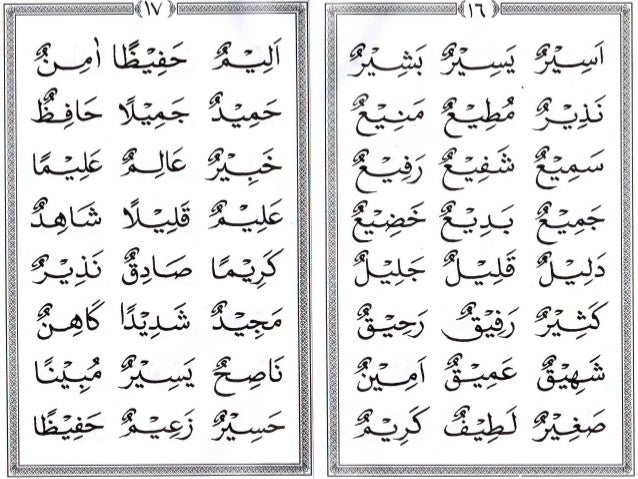 ١٦
اَسِيْرٌ يَسِيْرٌ بَشِيْرٌ
نَذِيْرٌ مُطِيْعٌ مَنِيْعٌ
سَمِيْعٌ شَفِيْعٌ رَفِيْعٌ
جَمِيْعٌ بَدِيْعٌ خَضِيْعٌ
دَلِيْلٌ قَلِيْلٌ جَلِيْلٌ
كَثِيْرٌ رَفِيْقٌ رَحِيْقٌ
شَهِيْقٌ عَمِيْقٌ اَمِيْنٌ
صَغِيْرٌ لَطِيْفٌ كَرِيْمٌ
١٧
اَلِيْمٌ حَفِيْظًا اٰمِنٌ
حَمِيْدٌ جَمِيْلًا حَافِظٌ
خَبِيْرٌ عَالِمٌ عَلِيْمًا
عَلِيْمٌ قَلِيْلًا شَاهِدٌ
كَرِيْمًا صَادِقٌ نَذِيْرٌ
مَجِيْدٌ شَدِيْدًا كَاهِنٌ
نَاصِحٌ يَسِيْرٌ مُبِيْنًا
حَسِيْرٌ زَعِيْمٌ حَفِيْظًا